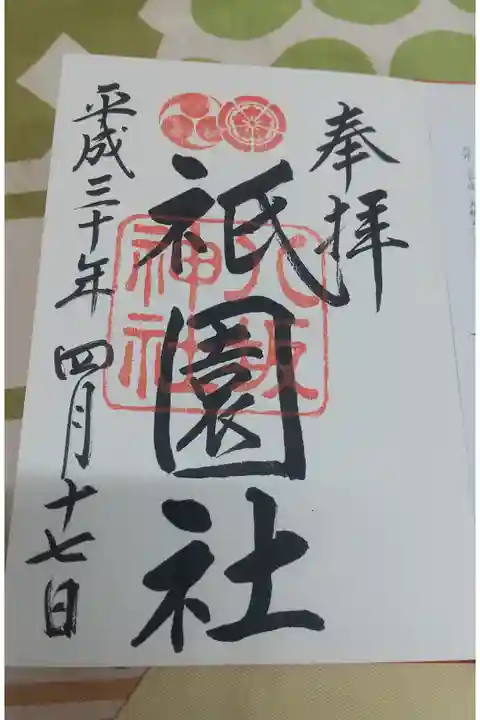 奉拝
祇園社
八坂
神社
平成三十年四月十七日